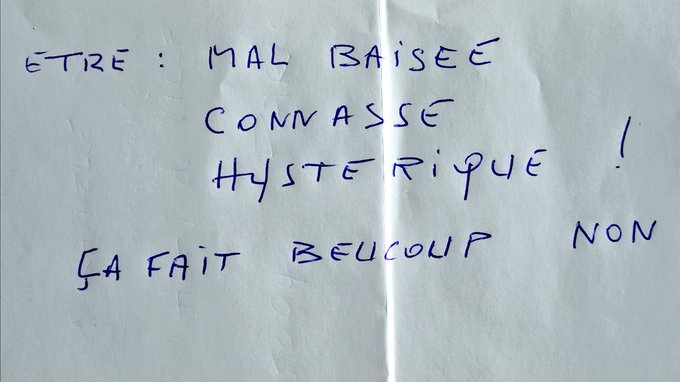 ETRE : MAL BAISEE
CONNASSE
HYSTERIQUE !
ÇA FAIT BEUCOUP NON